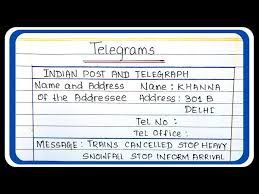 Telegrams
INDIAN POST AND TELEGRAPH
Name and Address Name: KHANNA
Of the Addressee Address: 301 B
DELHI
Tel No:
Tel Office:
MESSAGE: TRAINS CANCELLED STOP HEAVY
SNOWFALL STOP INFORM ARRIVAL